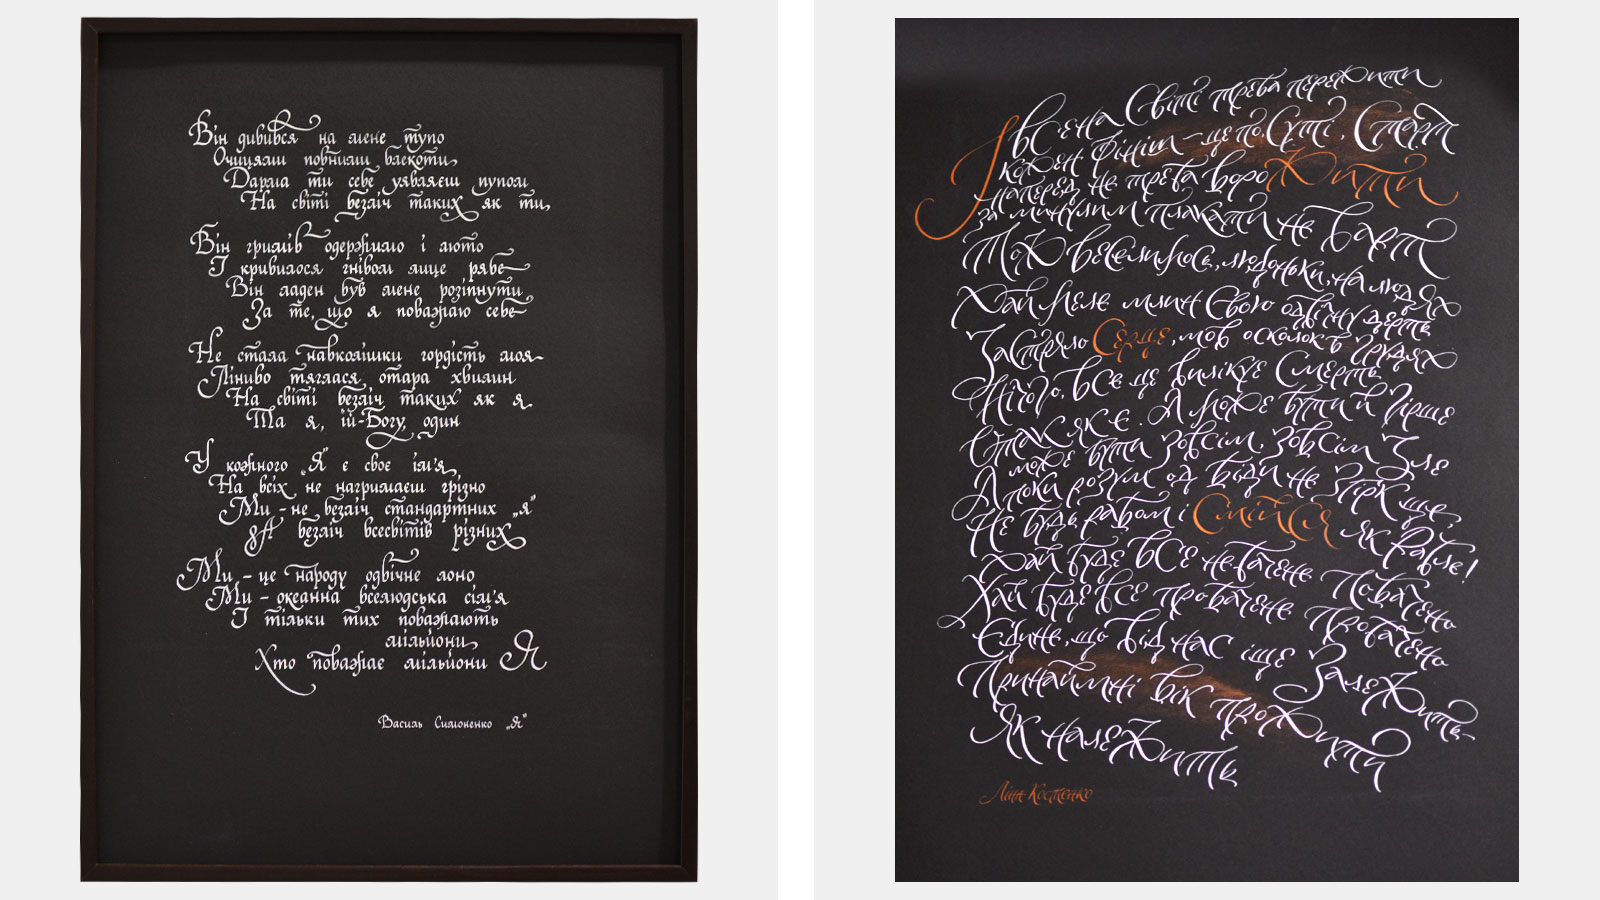 Він дивився на мене тупо
Очицями повними блекоти,
Дарма ти себе уявляєш пупом
На світі безліч таких як ти,
Він гримів одержимо і люто
І кривилося гнівом лице рябе
Він ладен був мене розіпнути
За те, що я поважаю себе
Не стала навколішки гордість моя
Ліниво тяглася отара хвилин
На світі безліч таких як я
Та я, їй-Богу, один
У кожного „Я" є своє ім'я,
На всіх не нагримаєш грізно
Ми - не безліч стандартних „я"
А безліч всесвітів різних
Ми - це народу одвічне лоно
Ми - океанна вселюдська сім'я
І тільки тих поважають
мільйони,
Хто поважає мільйони Я
Василь Симоненко „Я"
І все на світі треба пережити
кожен фініш - це по суті, старт
наперед не треба ворожити
за минулим плакати не варт
Тож веселімось, людоньки, на людях
Хай меле млин свою одвічну дерть
Застряло серце, мов осколок в грудях
Нічого, все це вилікує смерть
так як є. А може бути й гірше
А може бути зовсім, зовсім зле
А поки розум од біди не згірк ще,
Не будь рабом і смійся як Рабле!
Хай буде все небачене побачено
Хай буде все пробачене пробачено
Єдине, що від нас іще залежить-
Принаймні вік прожити
як належить
Ліна Костенко